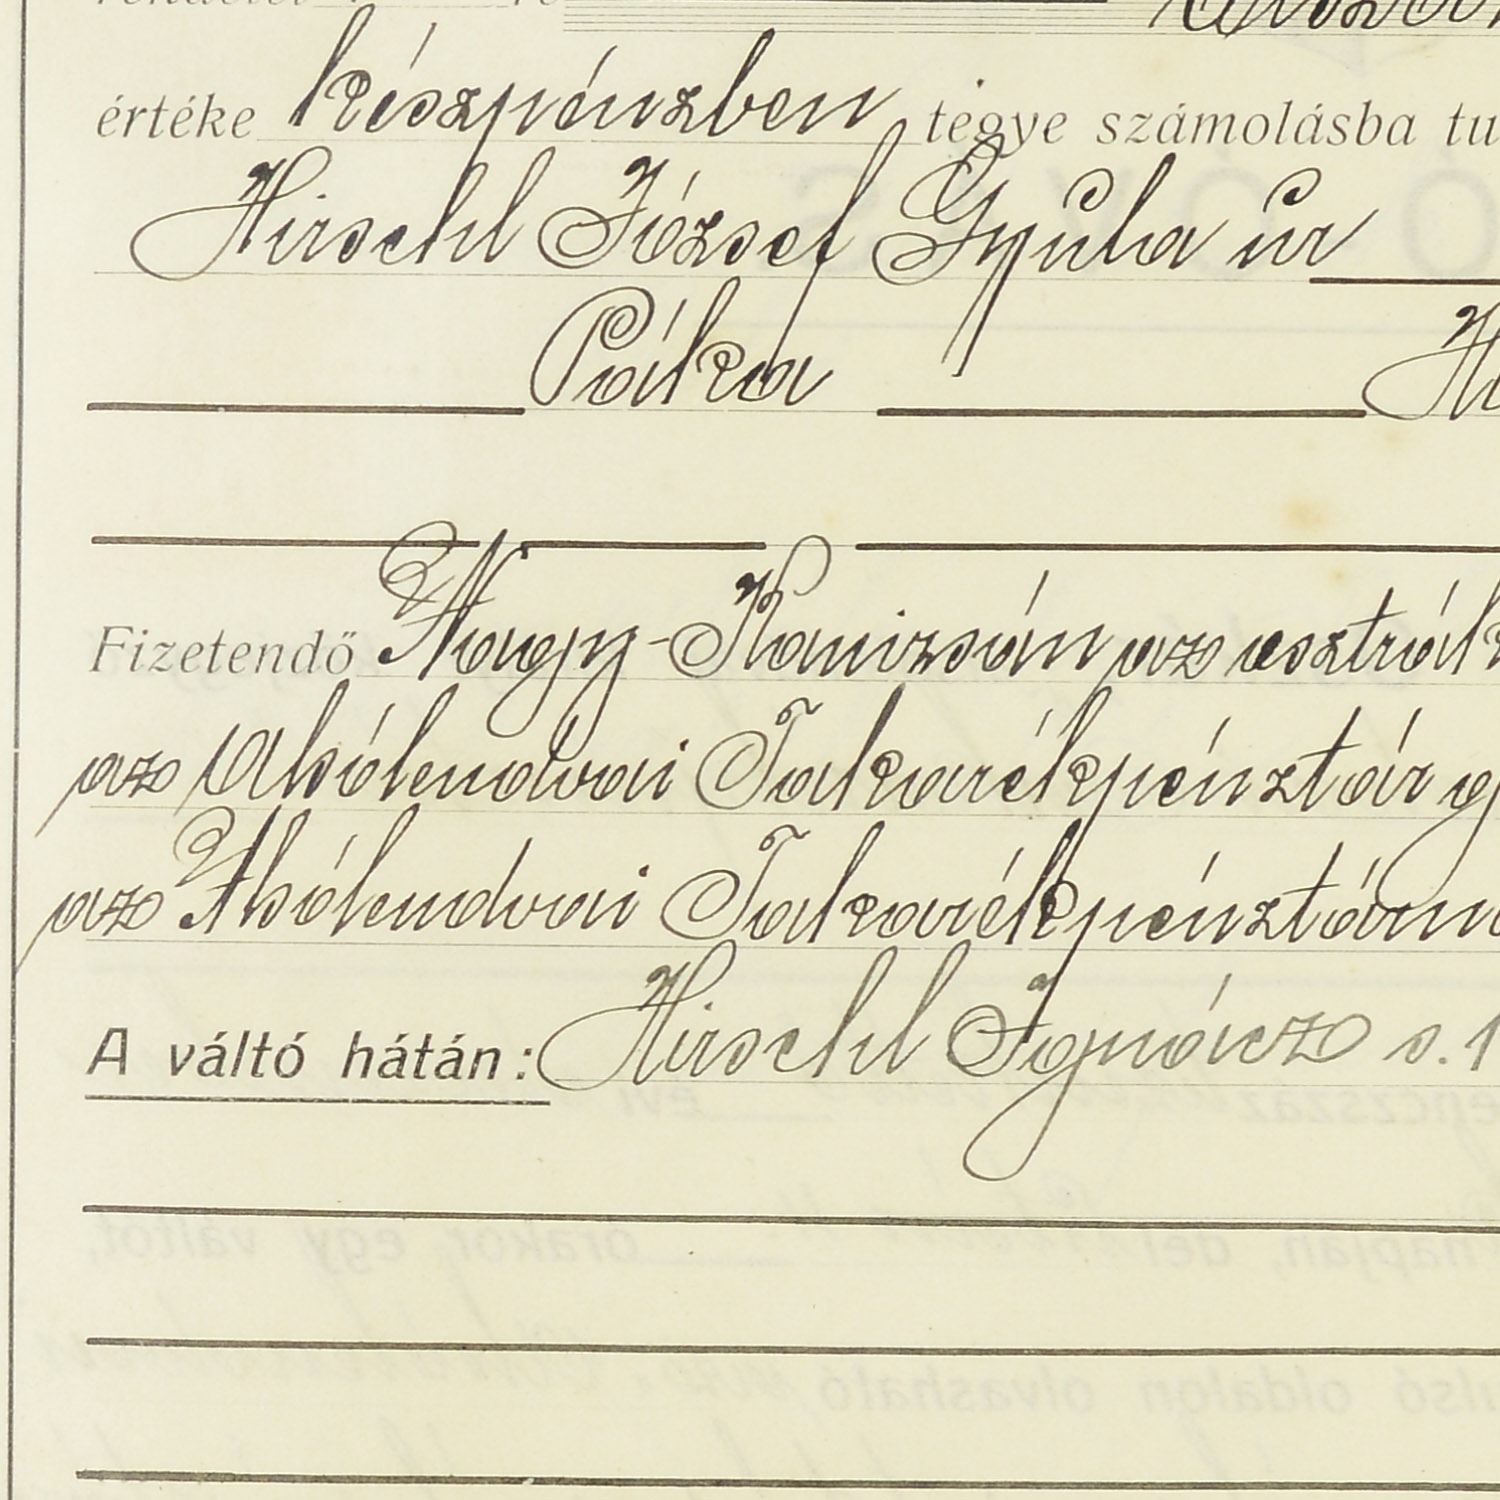 értéke készpénzben tegye számolásba tu
Hirschl József Gyula úr
Páka
Fizetendő Nagy-Kanizsán az osztrák
az Alsólendvai Takarékpénztár
az Alsólendvai Takarékpénztárn
A váltó hátán: Hirschl Ignácz s.